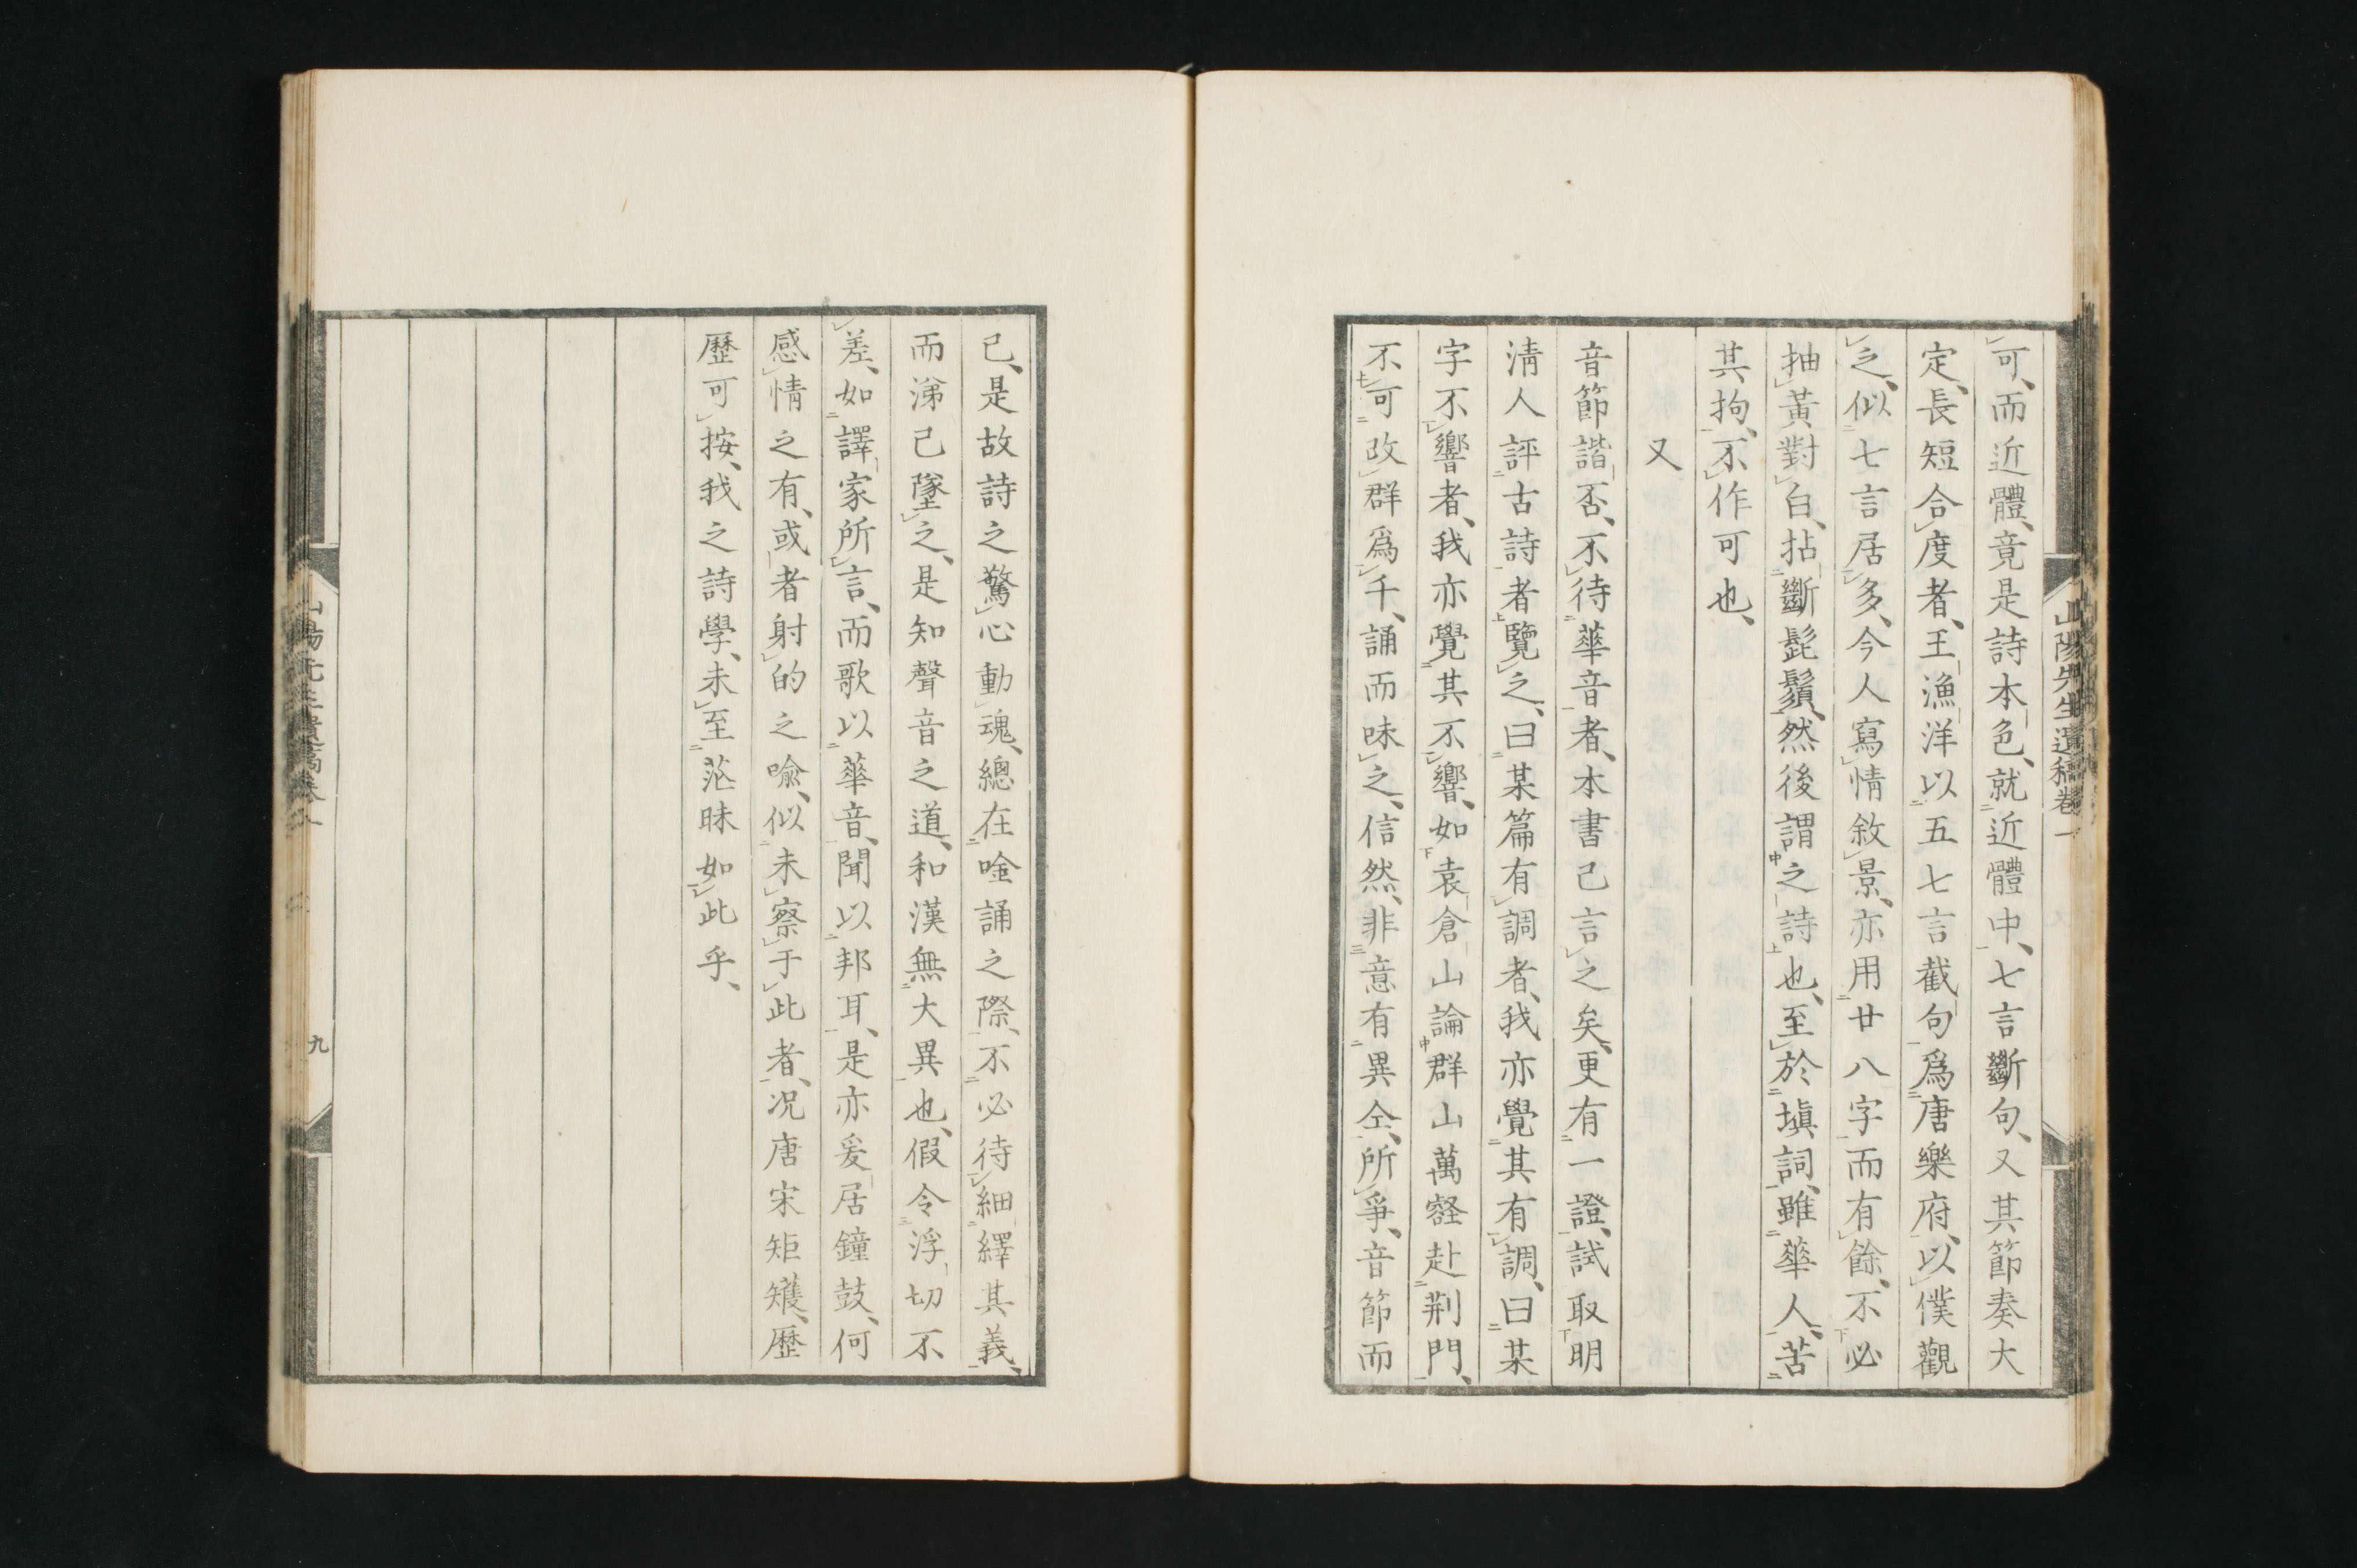 山陽先生遺稿卷一
可、而近體、竟是詩本色、就近體中、七言斷句、又其節奏大
定、長短合度者、王漁洋以五七言截句爲唐樂府、以僕觀
之、似七言居多、今人寫情敘景、亦用廿八字而有餘、不必
抽黃對白、拈斷髭鬚、然後謂之詩也、至於塡詞、雖華人、苦
其拘、不作可也、
又
音節諧否、不待華音者、本書已言之矣、更有一證、試取明
淸人評古詩者覽之、曰某篇有調者、我亦覺其有調、曰某
字不響者、我亦覺其不響、如袁倉山論群山萬壑赴荆門、
不可改群爲千、誦而味之、信然、非意有異仝、所爭、音節而
已、是故詩之驚心動魂、總在唫誦之際、不必待細繹其義、
而涕已墜之、是知聲音之道、和漢無大異也、假令浮切不
差、如譯家所言、而歌以華音、聞以邦耳、是亦爰居鐘鼓、何
感情之有、或者射的之喩、似未察于此者、况唐宋矩矱、歷
歷可按、我之詩學、未至茫昧如此乎、
九